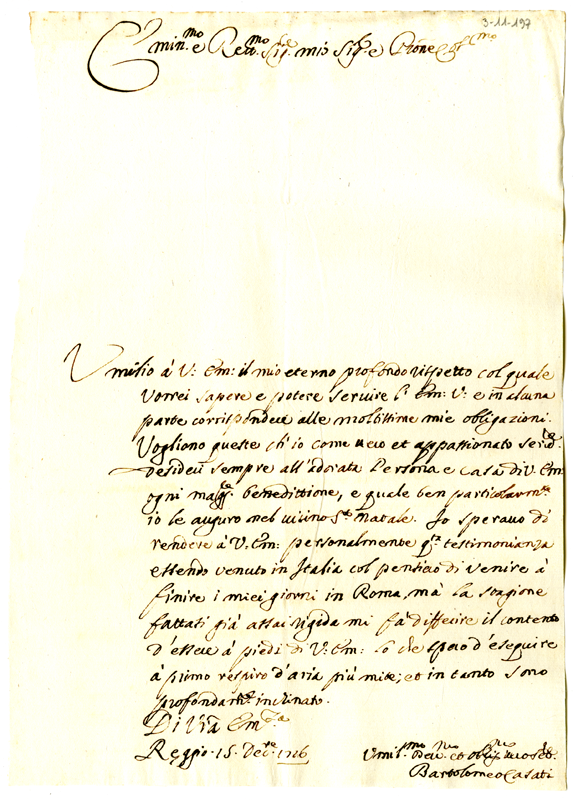 3-11-197
Emin.mo e Rev.mo Sig.re mio Sig.re e Pròne Col.mo
Umilio à V: Em: il mio eterno profondo rispetto col quale
vorrei sapere e potere servire l' Em: V: e in alcuna
parte corrispondere alle moltissime mie obligazioni.
Vogliono queste ch' io come vero et appassionato ser.re
desideri sempre all' adorata Persona e Casa di V: Em:
ogni mag.re benedittione, e quale ben particolarm.te
io le auguro nel vicino S.to Natale. Io speravo di
rendere à V: Em: personalmente q.ta testimonianza
essendo venuto in Italia col pensiero di venire à
finire i miei giorni in Roma, mà la stagione
fattasi già assai rigida mi fà differire il contento
d'essere à piedi di V: Em: lo che spero d'eseguire
à primo respiro d'aria più mite; et in tanto sono
profondam.te inclinato.
Di V:ra Em.za
Reggio 15. Dec.re 1716
Umil.mo Dev.mo et Obblig.mo Ser.
Bartolomeo Casati